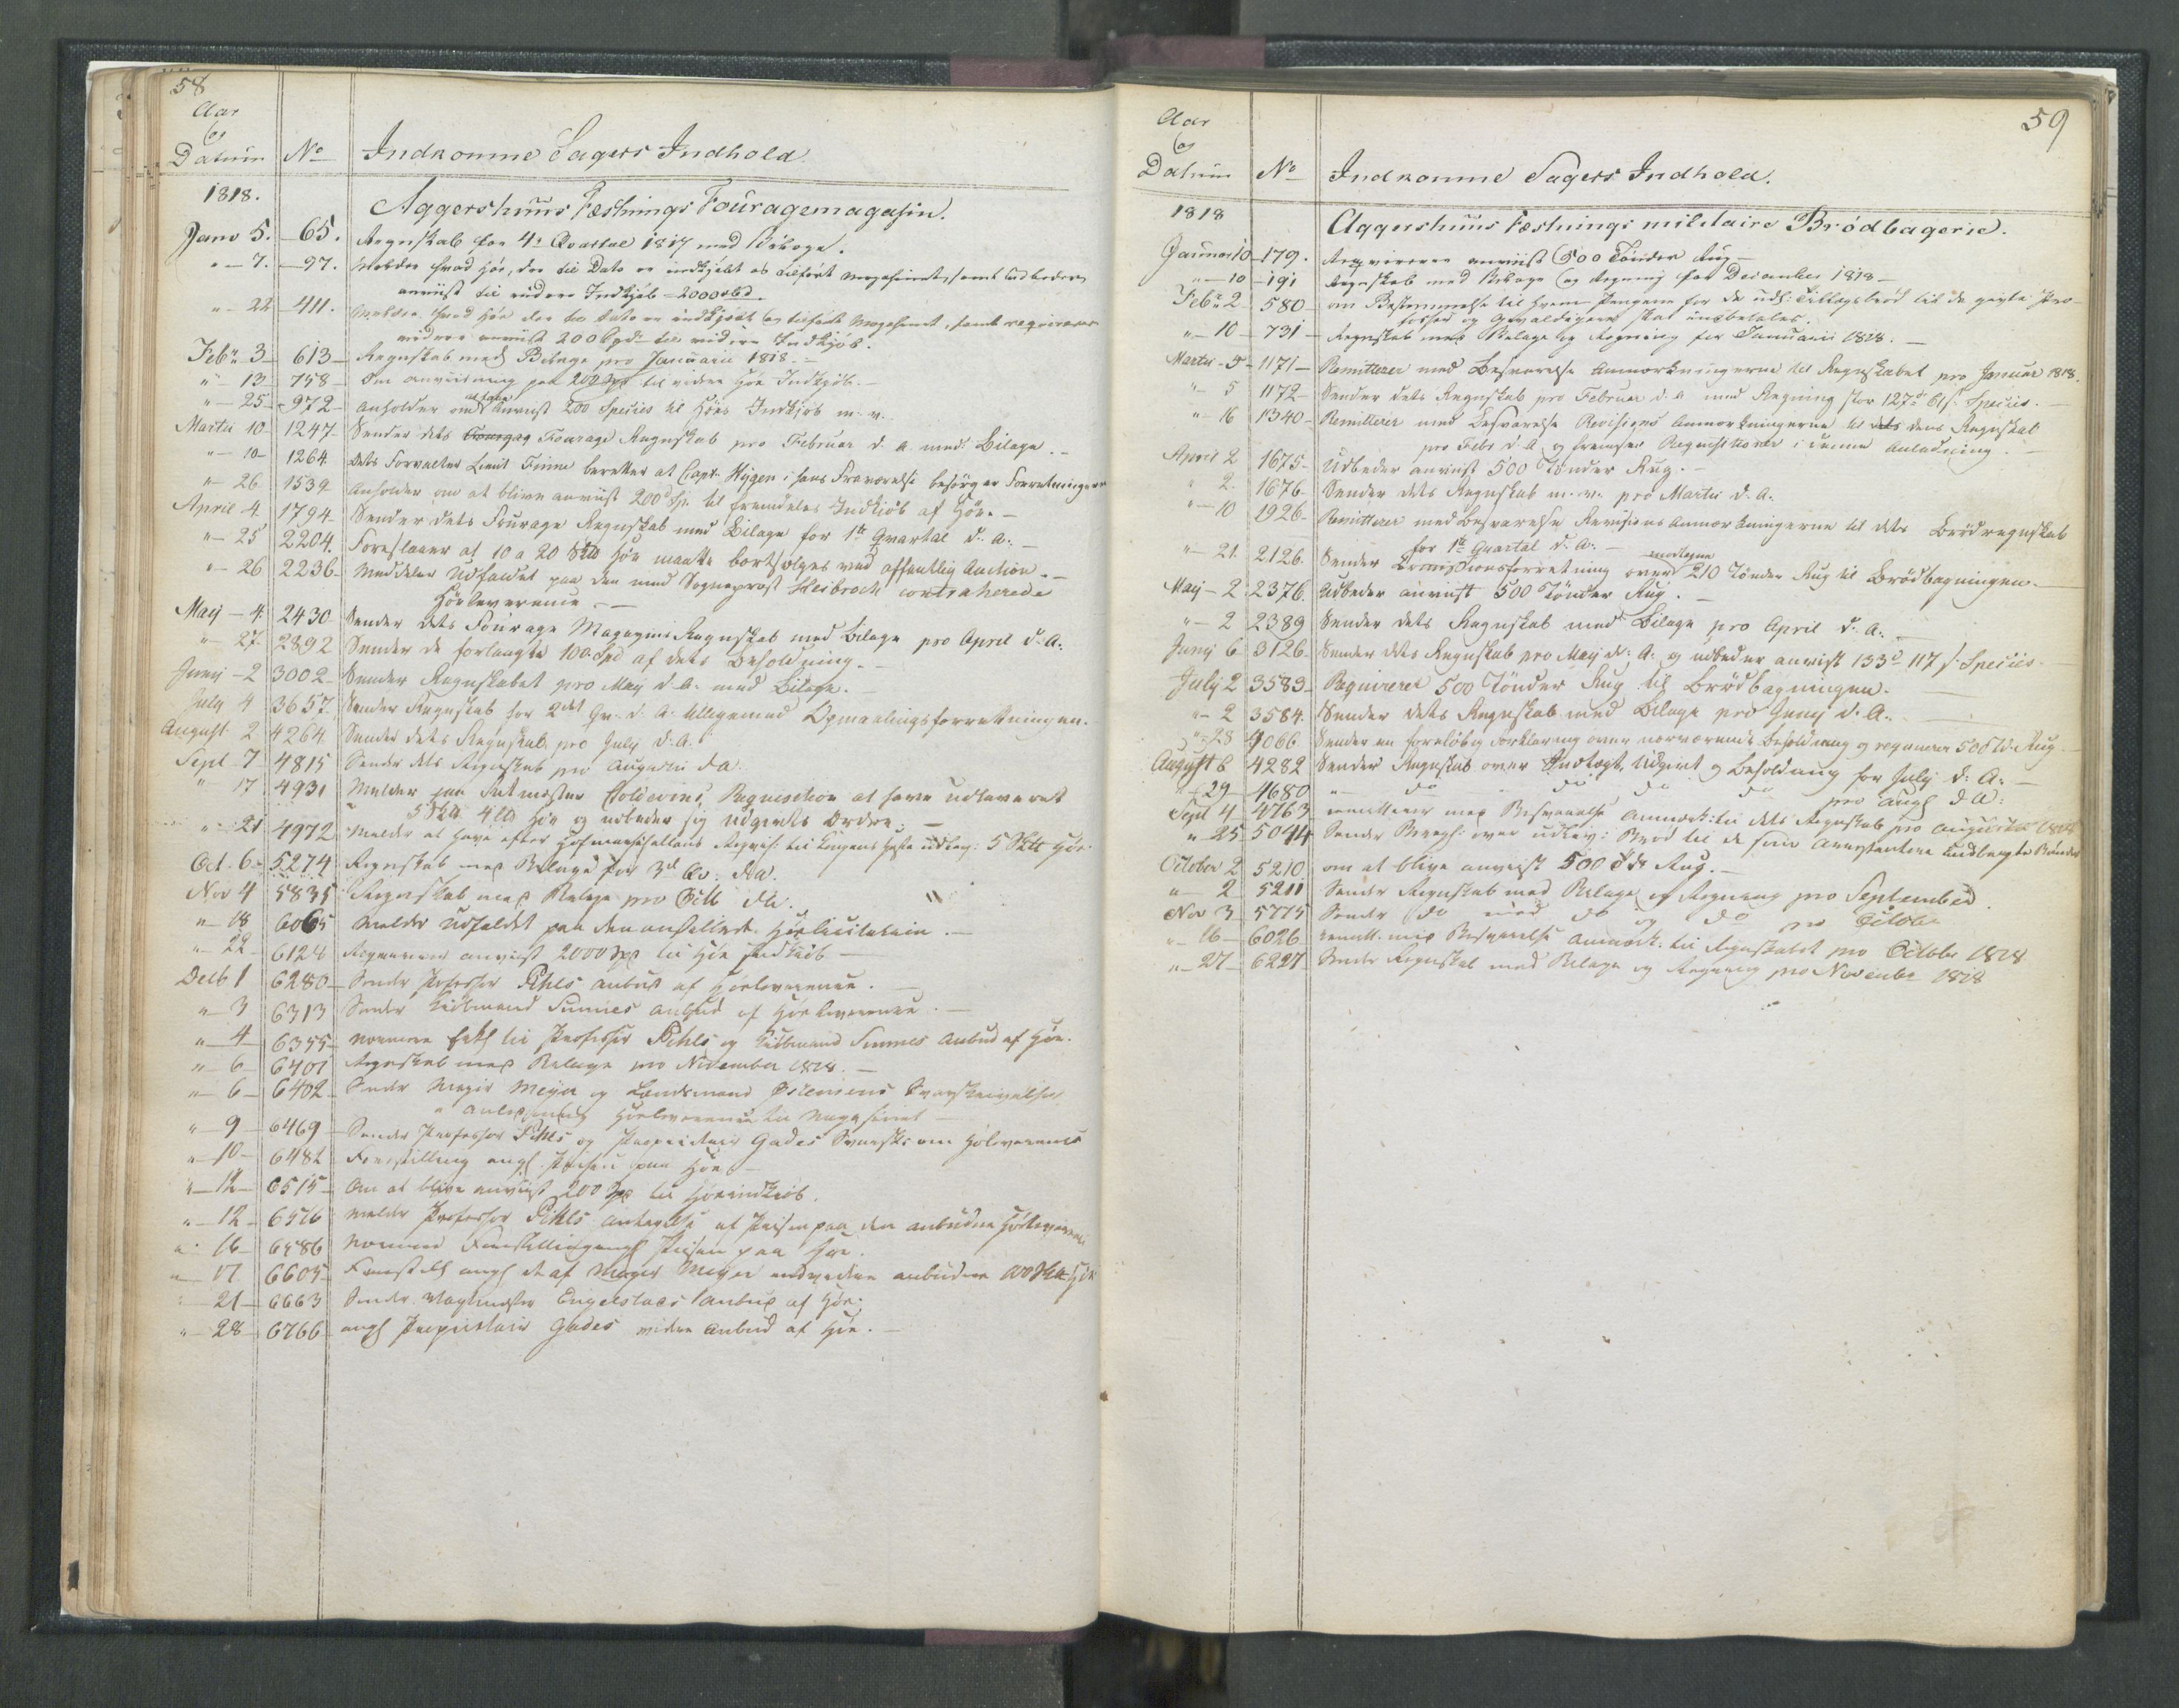 58
Aar
og
Datum No Indkomne Sagers Indhold.
1818. Aggershuus Fæstnings Fouragemagasin.
Janv 5. 65. Regnskab for 4de Qvartal 1817 med Bilage.
" 7. 97. Melder hvad Höe, der til Dato er indkjöbt og tilfört Magasinet, samt udbeder
anviist til videre Indkjöb 2000
" 22 411. Melder hvad Höe der til Dato er indkjöbt og tilfört Magasinet, samt reqvirerer
videre anviist 200 Spd. til videre Indkjöb.
Febr. 3 613 Regnskab med Bilage pro Januarii 1818.
" 13 758 Om anviisning paa 200 Spd til videre Höe Indkjöb.
" 25 972 Anholder om at faae anviist 200 Species til Höes Indkjöb m. v.
Martii 10 1247 Sender dets Fourage Regnskab pro Februar d. A. med Bilage.
" 10 1264. Dets Forvalter Lieut Finne beretter at Capt. Hygen i hans Fraværelse besörger Forretningerne
" 26 1539 Anholder om at blive anviist 200 Sp. til fremdeles Indkiöb af Höe.
April 4 1794 Sender dets Fourage Regnskab med Bilage for 1ste Qvartal d. A.
" 25 2204. Foreslaaer at 10 a 20 Höe maatte bortsælges ved offentlig Auction.
" 26 2236 Meddeler Udfaldet paa den med Sogneprest Heibroch contraherede
Höeleverence.
Maij 4. 2430 Sender dets Fourage Magazins Regnskab med Bilage pro April d. A.
" 27. 2892 Sender de forlangte 100 Spd af dets Beholdning.
Junij 2 3002 Sender Regnskabet pro Maij d. A. med Bilage.
July 4 3657. Sender Regnskab for 2det Qv. d. A. tilligemed Opmaalingsforretningen.
August 2 4264 Sender dets Regnskab pro July d. A.
Sept 7 4815 Sender dets Regnskab pro Augusti d A.
" 17 4931 Melder paa Ritmester Coldevins Reqvisition at have udleveret
5 4 Höe og udbeder sig Udgivts Ordre.
" 21 4972 Melder at have efter Hofmarschallens Reqvis: til Kongens Heste udlev: 5 Höe.
Oct. 6 5274 Regnskab med Bilage for 3de Qv. dA.
Nov 4 5835 Regnskab med Bilage pro Octb dA.
" 18 6065 Melder Udfaldet paa den anstillede Höelicitation.
" 22 6124 Reqvirerer anviist 2000 Spd til Höe Indkiöb
Decb 1 6280 Sender Professor Pihls Anbud af Höeleverence.
" 3 6313 Sender Kiöbmand Sunnes Anbud af Höeleverence.
" 4 6355 til Professor Pihls og Kiöbmand Sunnes Anbud af Höe.
" 6 6401 Regnskab med Bilage pro November 1818.
" 6 6402 Sender Major Meyer og Lensmand Svarskrivelser
i Anledning Höeleverence til Magasinet
" 9 6469 Sender Professor Pihls og Proprietair Gades Svarsk: om Höleverence
" 10 6482 Forestilling ang: Prisen paa Höe.
" 12 6515 Om at blive anviist 200 Spd til Höeindkiöb.
" 12 6576 Melder Professor Pihls Antagelse af Prisen paa den anbudne Höeleverence
" 16 6586 Forestilling angl Prisen paa Höe.
" 17. 6605 Forestill angl det af Major Meyer anbudne Höe
" 21 6663 Sender Vagtmester Engelstads Anbud af Höe.
" 28 6766 angl Proprietair Gades videre Anbud af Höe.
59
Aar
og
Datum No Indkomne Sagers Indhold.
1818 Aggershuus Fæstnings militaire Brödbagerie.
Januar 10 179. Reqvirerer anviist 500 Tönder Rug
" 10 191 Regnskab med Bilage og Regning for December 1818
Febr 2 580 om Bestemmelse til hvem Pengene for de udl: Tillægsbröd til de gifte Pro-
fosser og Gevaldigere skal indbetales.
" 10 731 Regnskab med Bilage og Regning for Januarii 1818.
Martii 5 1171 Remitterer med Besvarelse Anmærkningerne til Regnskabet pro Januar 1818.
" 5 1172 Sender dets Regnskab pro Februar d. A med Regning stor 127 61 s. Species.
" 16 1340 Remitterer med Besvarelse Revisions Anmærkningerne til dets Regnskab
pro Febr d. A og fremsender i denne Anledning.
April 2 1675 Udbeder anviist 500 Tönder Rug.
" 2. 1676 Sender dets Regnskab m. v. pro Martii d. A.
" 10 1926 Remitterer med Besvarelse Revisions Anmærkningerne til dets Brödregnskab
for 1ste Quartal d. A.
" 21. 2126. Sender Commissionsforretning over modtagne 210 Tönder Rug til Brödbagningen.
Maij 2 2376. Udbeder anviist 500 Tönder Rug.
" 2 2389 Sender dets Regnskab med Bilage pro April d. A.
Junij 6 3126 Sender dets Regnskab pro Maij d. A. og udbeder anvist 133 117 s. Species.
July 2 3583 Requirerer 500 Tönder Rug til Brödbagningen.
" 2 3584. Sender dets Regnskab med Bilage pro Junij d. A.
" 28 4066 Sender en foreløbig Forklaring over nærværende Beholdning og reqvirerer 500 Td. Rug.
August 6 4282 Sender Regnskab over Indtægt, Udgivt og Beholdning for July d. A.
" 29 4680 " do do do do pro Augs dA.
Sept 4 4763 remitterer med Besvarelse Anmærk: til dets Regnskab pro Augusti 1818
" 25 5044 Sender Beregn: over udlev: Bröd til de som Arrestantere indbragte Bönder
October 2 5210 om at blive anviist 500 Tdr Rug.
" 2 5211 Sender Regnskab med Bilage og Regning pro September.
Nov 3 5775 Sender do med do og do pro October
" 16 6026 remitt. med Besvarelse Anmærk. til Regnskabet pro October 1818
" 27 6227 Sender Regnskab med Bilage og Regning pro November 1818